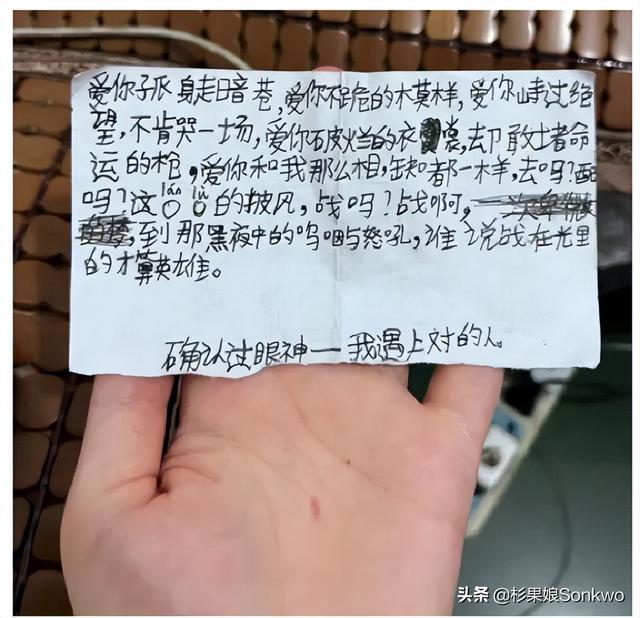 爱你孤身走暗巷，爱你不跪的模样，爱你峙过绝
望，不肯哭一场，爱你破烂的衣裳，却敢堵命
运的枪，爱你和我那么相，缶知都一样，去吗？配
lán lǚ
吗？这〇〇的披风，战吗？战啊，
到那黑夜中的呜咽与怒吼，谁说战在光里
的才算英雄。
确认过眼神——我遇上对的人。
头条 @杉果娘Sonkwo